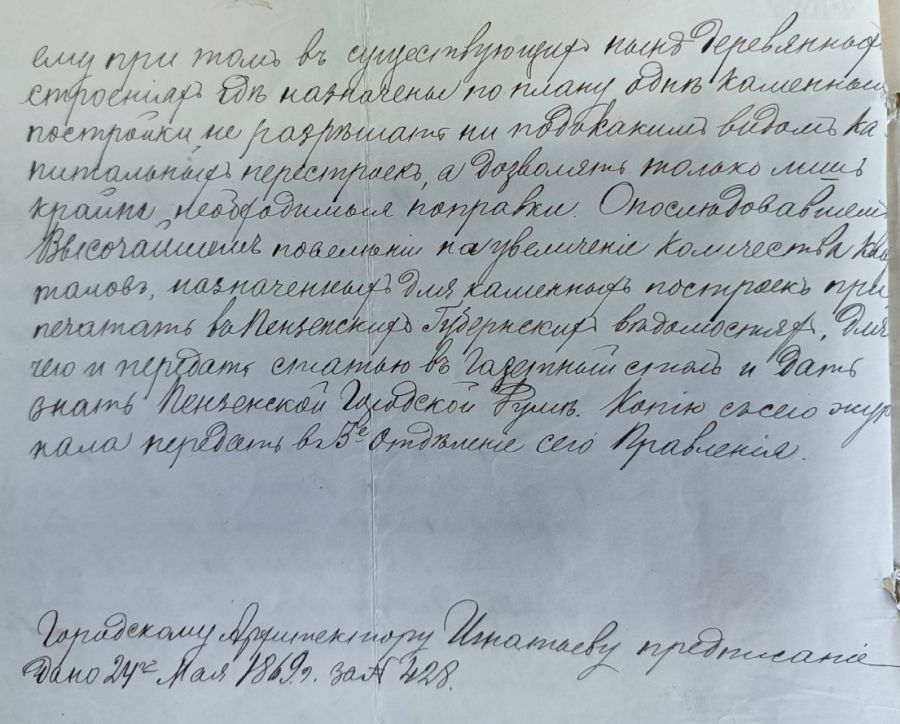 ему при томъ въ существующихъ нынѣ деревянныхъ
строеніяхъ гдѣ назначены по плану однѣ каменныя
постройки, не разрѣшать ни подъ какимъ видомъ ка
питальныхъ перестроекъ, а дозволять только лишь
крайнѣ необходимыя поправки. О послѣдовавшемъ
Высочайшемъ повелѣніи на увеличеніе количества квар
таловъ, назначенныхъ для каменныхъ построекъ при
печатать въ Пензенскихъ Губернскихъ вѣдомостяхъ, для
чего и передать статью въ Газетный столъ и дать
знать Пензенской Городской Думѣ. Копію съ сего жур
нала передать въ 5е Отдѣленіе сего Правленія.
Городскому Архитектору Игнатьеву предписаніе
дано 24го Мая 1869 г. за № 428.